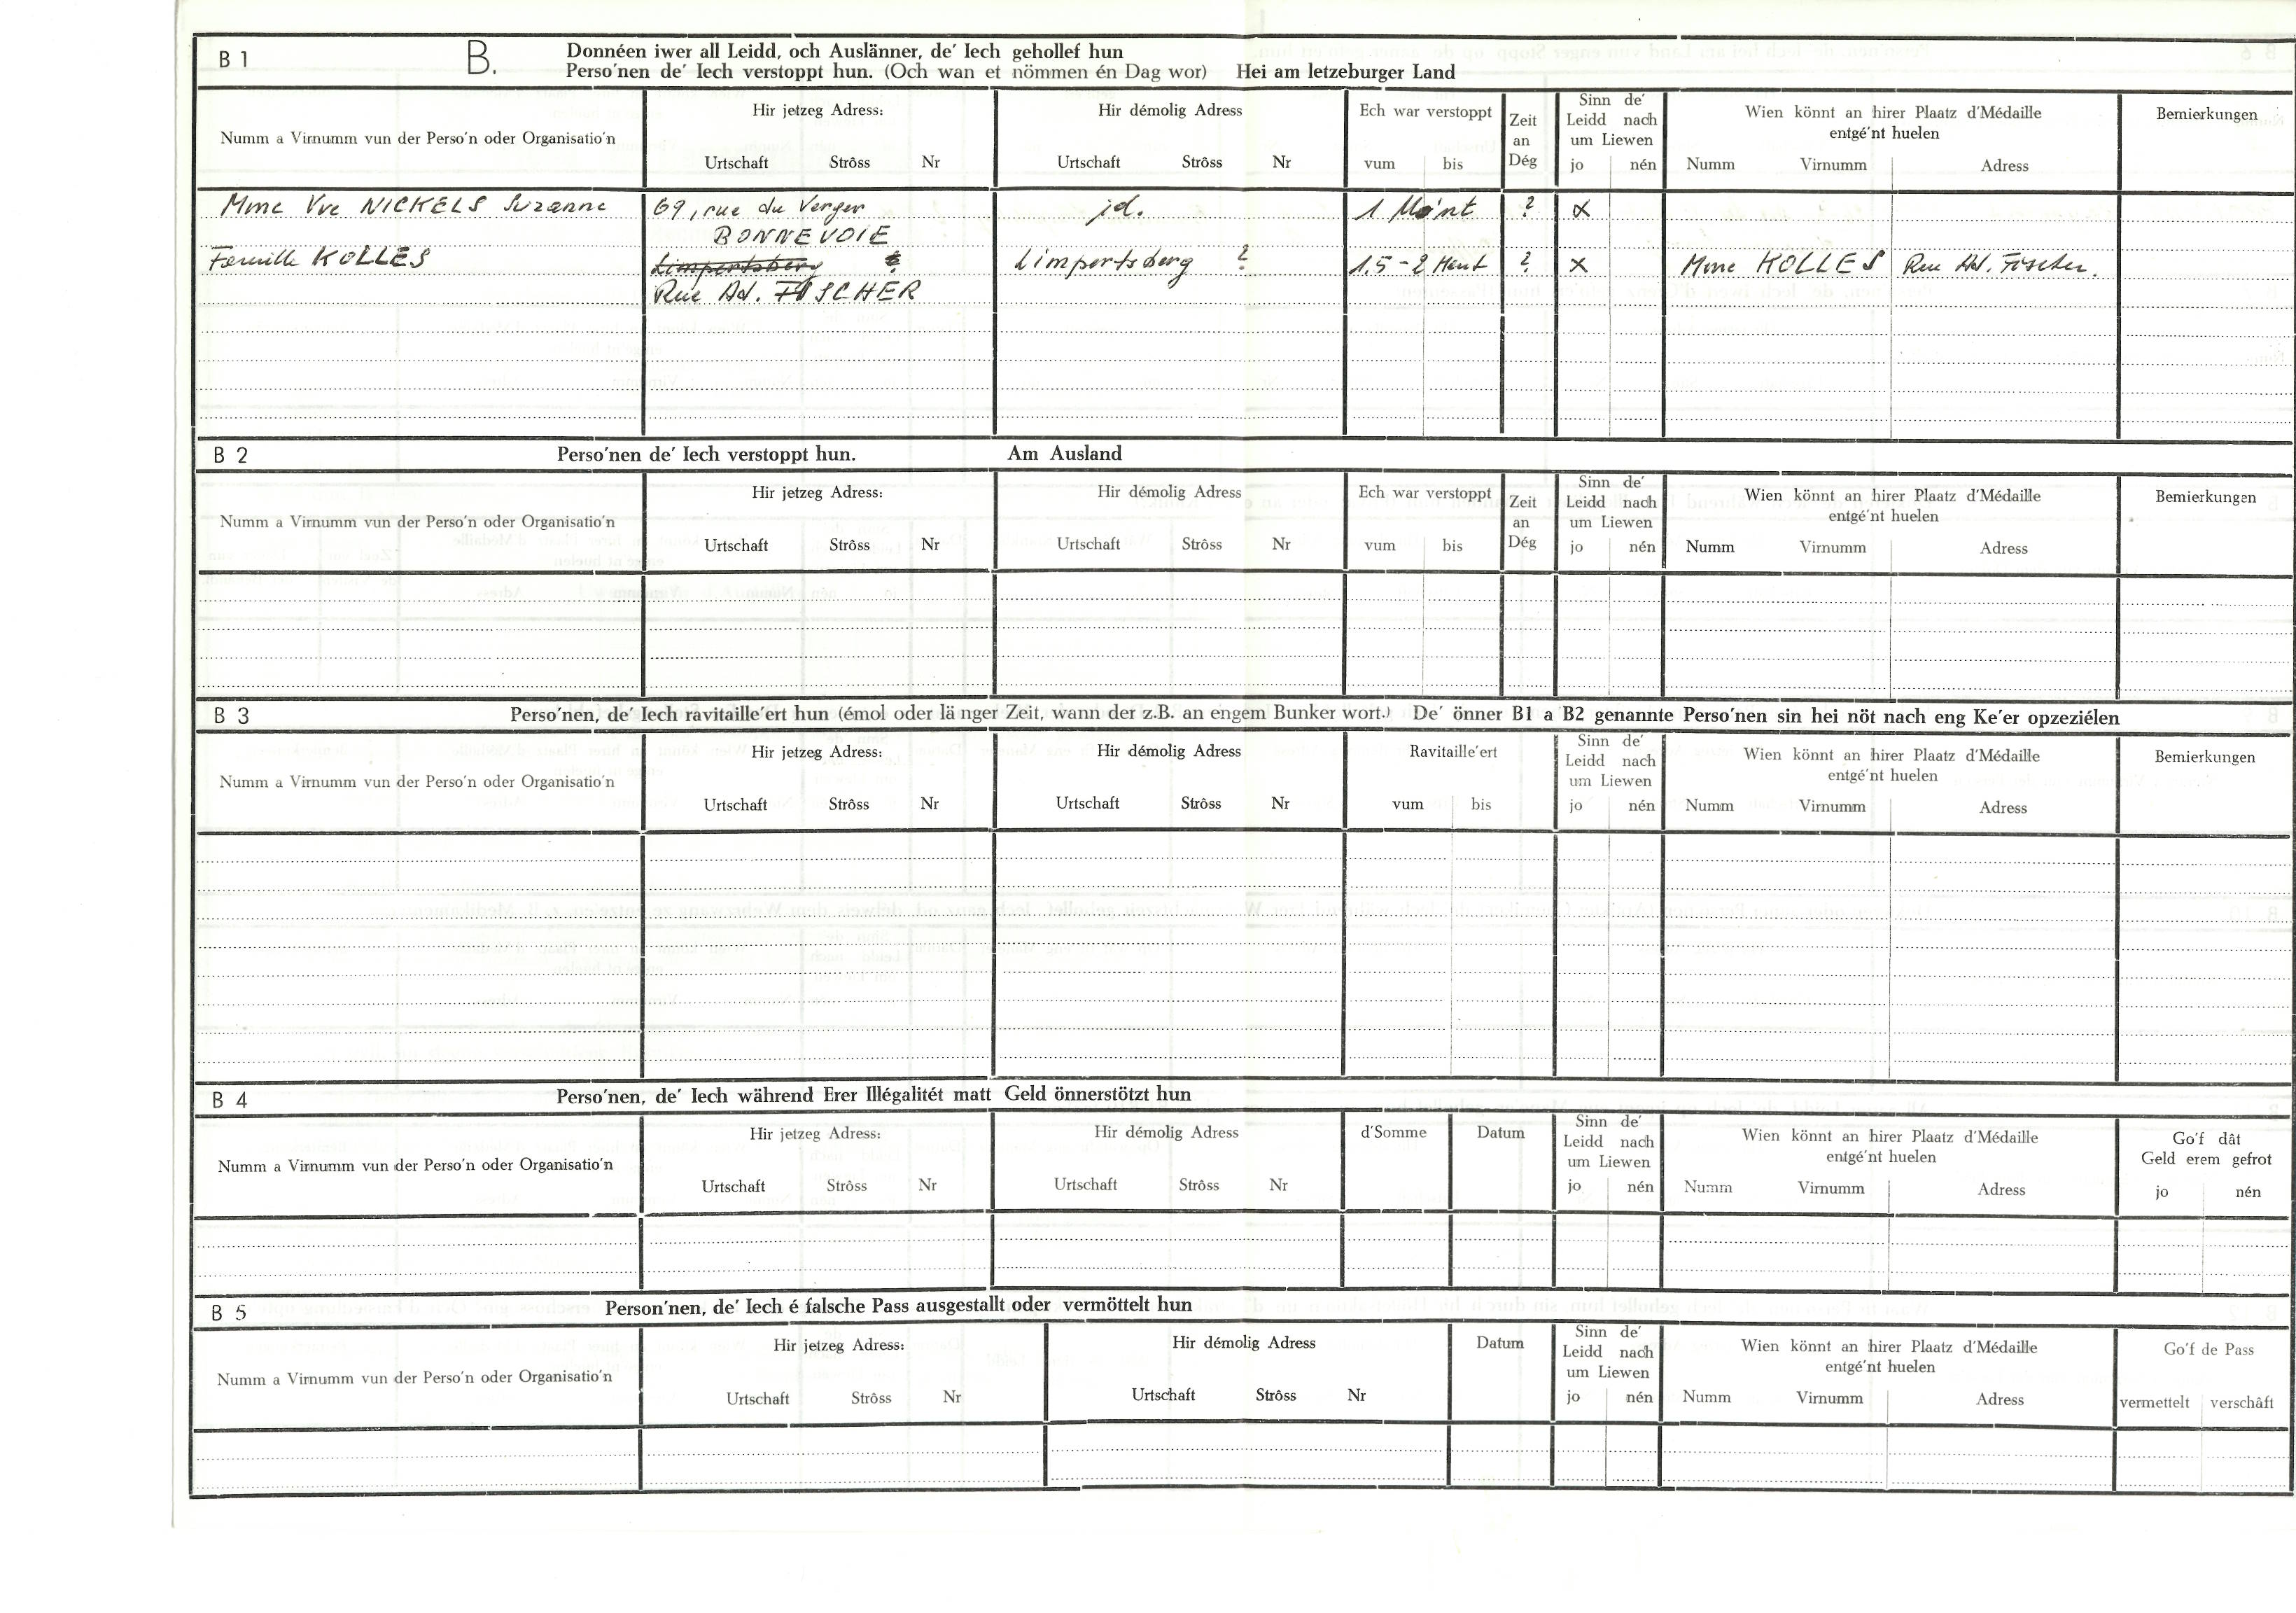 B 1 B. Donnéen iwer all Leidd, och Auslänner, de' Iech gehollef hun
Perso'nen de' Iech verstoppt hun. (Och wan et nömmen én Dag wor) Hei am letzeburger Land
Numm a Virnumm vun der Perso'n oder Organisatio'n
Hir jetzeg Adress:
Urtschaft Strôss Nr
Hir démolig Adress
Urtschaft Strôss Nr
Ech war verstoppt
vum bis
Zeit
an
Dég
Sinn de'
Leidd nach
um Liewen
jo nén
Wien könnt an hirer Plaatz d'Médaille
entgé'nt huelen
Numm Virnumm Adress
Bemierkungen
Mme Vve NICKELS Suzanne 69, rue du Verger id. 1 Mo'nt ? x
BONNEVOIE
Famille KOLLES Limpertsberg ? Limpertsberg ? 1,5 - 2 Ment ? x Mme KOLLES Rue Ad. Fischer.
Rue Ad. FISCHER
B 2 Perso'nen de' Iech verstoppt hun. Am Ausland
Numm a Virnumm vun der Perso'n oder Organisatio'n
Hir jetzeg Adress:
Urtschaft Strôss Nr
Hir démolig Adress
Urtschaft Strôss Nr
Ech war verstoppt
vum bis
Zeit
an
Dég
Sinn de'
Leidd nach
um Liewen
jo nén
Wien könnt an hirer Plaatz d'Médaille
entgé'nt huelen
Numm Virnumm Adress
Bemierkungen
B 3 Perso'nen, de' Iech ravitaille'ert hun (émol oder länger Zeit, wann der z.B. an engem Bunker wort.) De' önner B1 a B2 genannte Perso'nen sin hei nöt nach eng Ke'er opzeziélen
Numm a Virnumm vun der Perso'n oder Organisatio'n
Hir jetzeg Adress:
Urtschaft Strôss Nr
Hir démolig Adress
Urtschaft Strôss Nr
Ravitaille'ert
vum bis
Sinn de'
Leidd nach
um Liewen
jo nén
Wien könnt an hirer Plaatz d'Médaille
entgé'nt huelen
Numm Virnumm Adress
Bemierkungen
B 4 Perso'nen, de' Iech während Erer Illégalitét matt Geld önnerstötzt hun
Numm a Virnumm vun der Perso'n oder Organisatio'n
Hir jetzeg Adress:
Urtschaft Strôss Nr
Hir démolig Adress
Urtschaft Strôss Nr
d'Somme
Datum
Sinn de'
Leidd nach
um Liewen
jo nén
Wien könnt an hirer Plaatz d'Médaille
entgé'nt huelen
Numm Virnumm Adress
Go'f dât
Geld erem gefrot
jo nén
B 5 Person'nen, de' Iech é falsche Pass ausgestallt oder vermöttelt hun
Numm a Virnumm vun der Perso'n oder Organisatio'n
Hir jetzeg Adress:
Urtschaft Strôss Nr
Hir démolig Adress
Urtschaft Strôss Nr
Datum
Sinn de'
Leidd nach
um Liewen
jo nén
Wien könnt an hirer Plaatz d'Médaille
entgé'nt huelen
Numm Virnumm Adress
Go'f de Pass
vermettelt verschâft